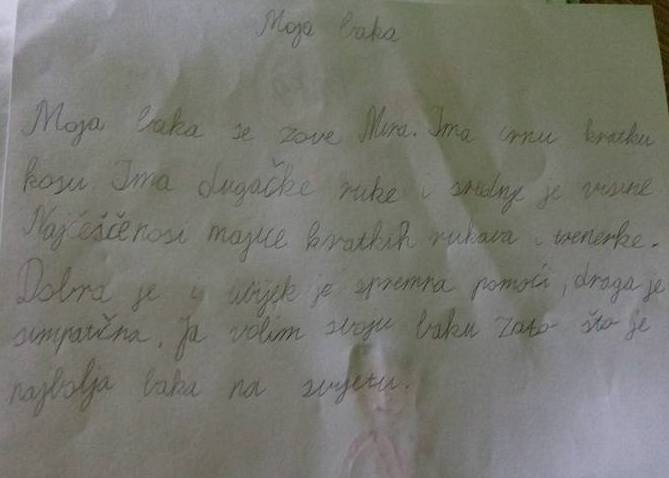 Moja baka
Moja baka se zove Mira. Ima crnu kratku
kosu. Ima dugačke ruke i srednje je visine
Najčešće nosi majice kratkih rukava i trenerke.
Dobra je i uvijek je spremna pomoći, draga je
simpatična. Ja volim svoju baku zato što je
najbolja baka na svijetu.